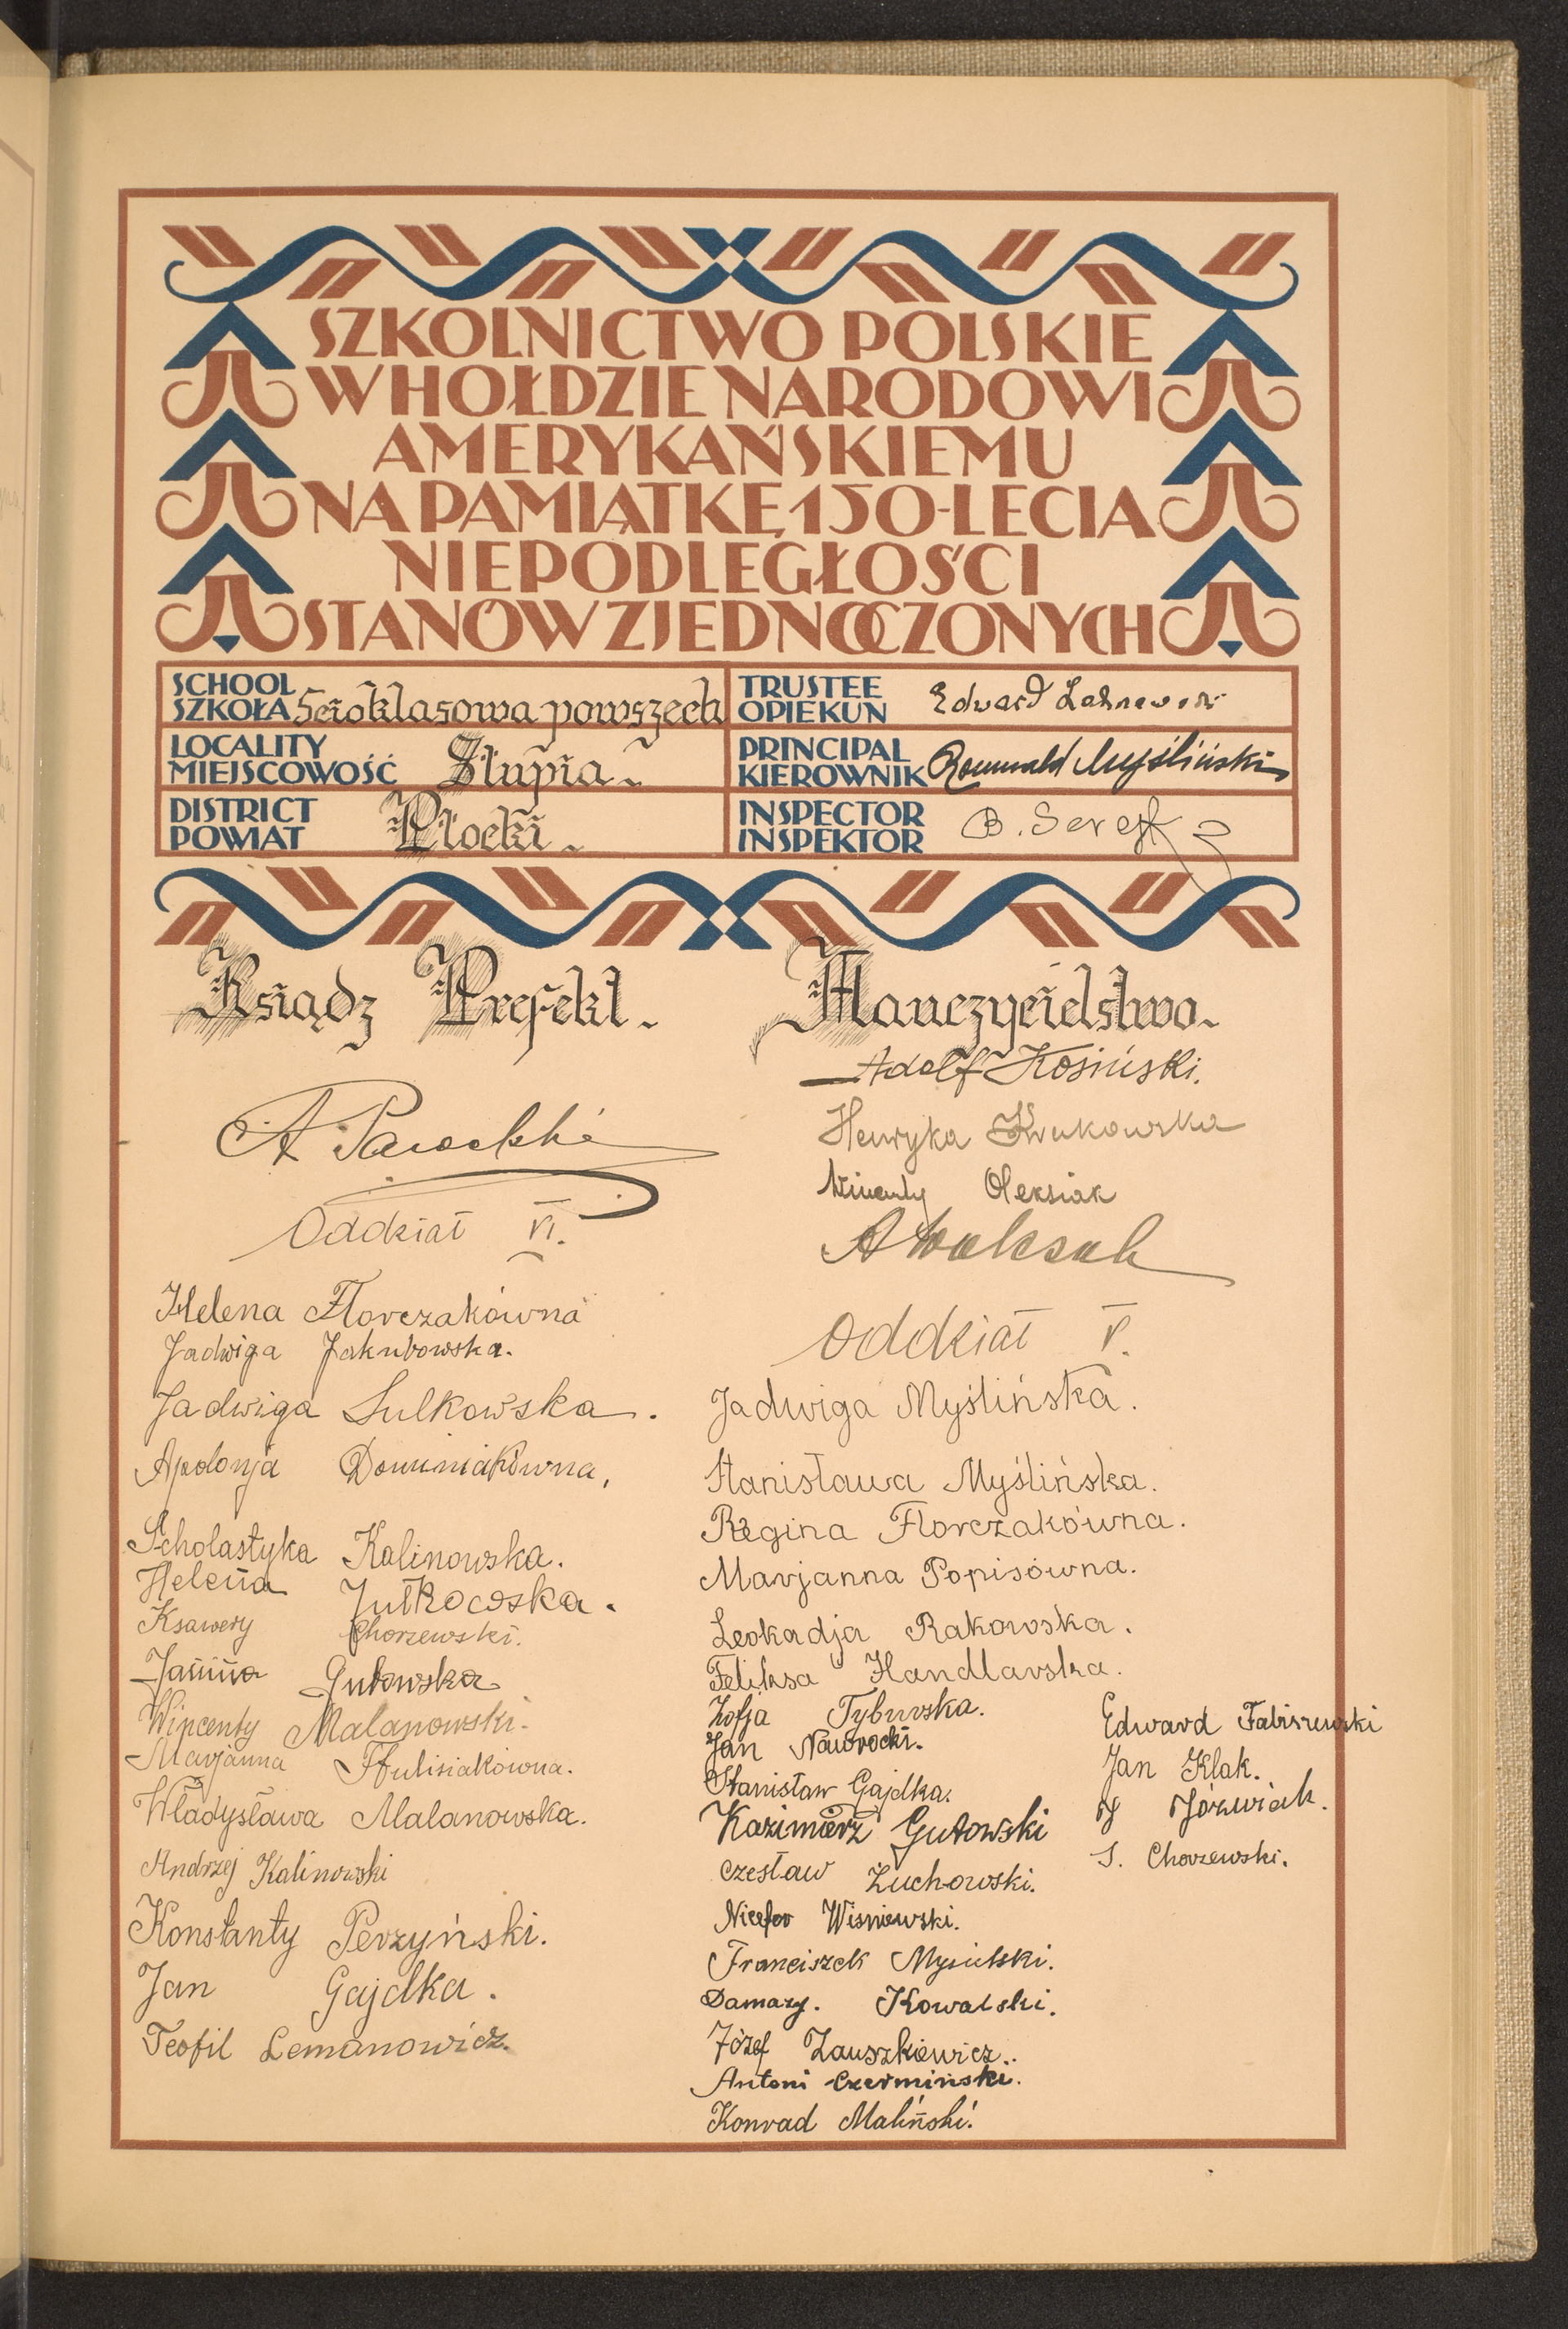 SZKOLNICTWO POLSKIE
W HOŁDZIE NARODOWI
AMERYKAŃSKIEMU
NA PAMIĄTKĘ 150-LECIA
NIEPODLEGŁOŚCI
STANÓW ZJEDNOCZONYCH
SCHOOL
SZKOŁA 5cioklasowa powszech
LOCALITY
MIEJSCOWOŚĆ Słupia
DISTRICT
POWIAT Płocki
TRUSTEE
OPIEKUN Edward
PRINCIPAL
KIEROWNIK Romuald Myśliński
INSPECTOR
INSPEKTOR B.
Ksiądz Prefekt.
A
Oddział VI.
Helena Florczakówna
Jadwiga Jakubowska.
Jadwiga Sulkowska.
Apolonja Dominiakówna,
Scholastyka Kalinowska.
Helena Jutkowska.
Ksawery Chorzewski.
Janina Gutowska
Wincenty Malanowski.
Marjanna
Władysława Malanowska.
Andrzej Kalinowski
Konstanty Perzyński.
Jan Gajdka.
Teofil Lemanowicz.
Nauczycielstwo.
Adolf Kosiński.
Henryka Krukowska
Wincenty Oleksiak
A
Oddział V.
Jadwiga Myślińska.
Stanisława Myślińska.
Regina Florczakówna.
Marjanna Popisówna.
Leokadja Rakowska.
Feliksa Handlarska.
Zofja Tyburska.
Jan Nawrocki.
Stanisław Gajdka.
Kazimierz Gutowski
Czesław Żuchowski.
Nicefor Wisniewski.
Franciszek
Damazy. Kowalski.
Józef Zauszkiewicz.
Antoni Czermiński.
Konrad Maliński.
Edward Fabiszewski
Jan Klak.
J Jóźwiak.
S. Chorzewski.